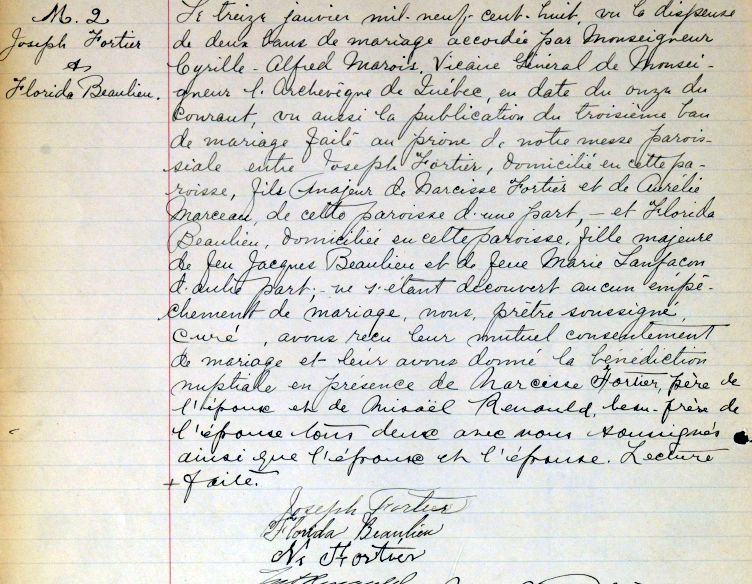 M. 2
Joseph Fortier
&
Florida Beaulieu.
Le treize janvier mil-neuf-cent-huit, vu la dispense
de deux bans de mariage accordée par Monseigneur
Cyrille-Alfred Marois, Vicaire Général de Monsei-
gneur l'Archevêque de Québec, en date du onze du
courant, vu aussi la publication du troisième ban
de mariage faite au prône de notre messe parois-
siale entre Joseph Fortier, domicilié en cette pa-
roisse, fils majeur de Narcisse Fortier et de Aurélie
Marceau, de cette paroisse d'une part, - et Florida
Beaulieu, domiciliée en cette paroisse, fille majeure
de feu Jacques Beaulieu et de feue Marie Lanfaçon
d'autre part; ne s'étant découvert aucun empê-
chement de mariage, nous, prêtre soussigné,
curé, avons reçu leur mutuel consentement
de mariage et leur avons donné la bénédiction
nuptiale en présence de Narcisse Fortier, père de
l'époux et de Misaël Renauld, beau-frère de
l'épouse tous deux avec nous soussignés
ainsi que l'époux et l'épouse. Lecture
+ faite.
Joseph Fortier
Florida Beaulieu
Ns Fortier